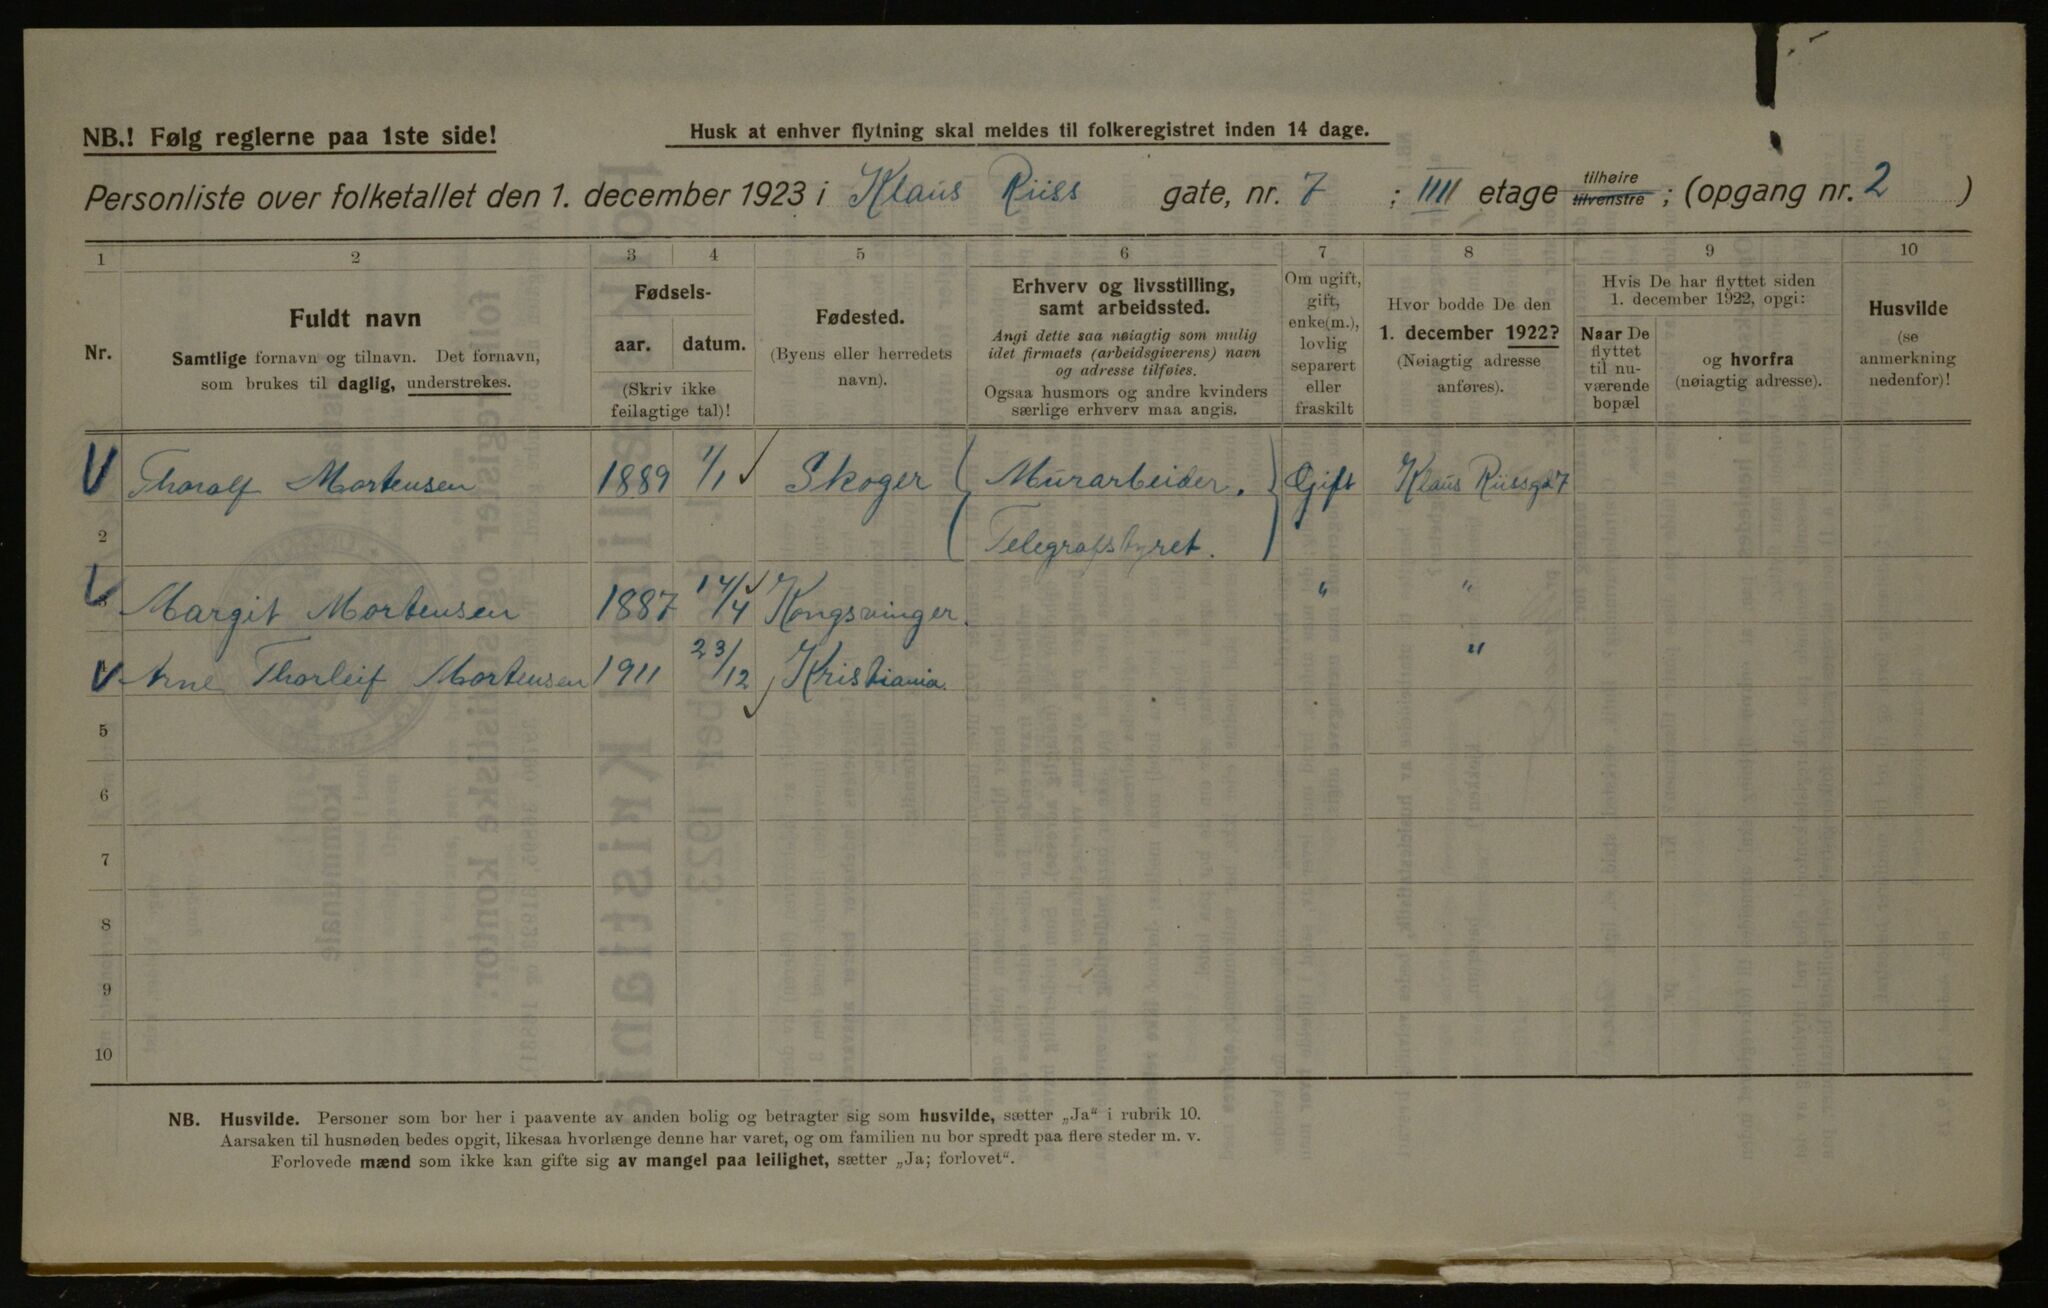 NB.! Følg reglerne paa 1ste side!
Husk at enhver flytning skal meldes til folkeregistret inden 14 dage.
Personliste over folketallet den 1. december 1923 i Klaus Riiss gate, nr. 7 ; IIII etage tilhøire tilvenstre ; (opgang nr. 2 )
1 2 3 4 5 6 7 8 9 10
Nr.
Fuldt navn
Samtlige fornavn og tilnavn. Det fornavn,
som brukes til daglig, understrekes.
Fødsels-
aar. datum.
(Skriv ikke
feilagtige tal)!
Fødested.
(Byens eller herredets
navn).
Erhverv og livsstilling,
samt arbeidssted.
Angi dette saa nøiagtig som mulig
idet firmaets (arbeidsgiverens) navn
og adresse tilføies.
Ogsaa husmors og andre kvinders
særlige erhverv maa angis.
Om ugift,
gift,
enke(m.),
lovlig
separert
eller
fraskilt
Hvor bodde De den
1. december 1922?
(Nøiagtig adresse
anføres).
Hvis De har flyttet siden
1. december 1922, opgi:
Naar De
flyttet
til nu-
værende
bopæl
og hvorfra
(nøiagtig adresse).
Husvilde
(se
anmerkning
nedenfor)!
Thoralf Mortensen 1889 1/1 Skoger Murarbeider. Gift Klaus Riissgd 7
2 Telegrafstyret.
3 Margit Mortensen 1887 14/4 Kongsvinger. " "
Arne Thorleif Mortensen 1911 23/12 Kristiania. "
5
6
7
8
9
10
NB. Husvilde. Personer som bor her i paavente av anden bolig og betragter sig som husvilde, sætter „Ja“ i rubrik 10.
Aarsaken til husnøden bedes opgit, likesaa hvorlænge denne har varet, og om familien nu bor spredt paa flere steder m. v.
Forlovede mænd som ikke kan gifte sig av mangel paa leilighet, sætter „Ja; forlovet“.